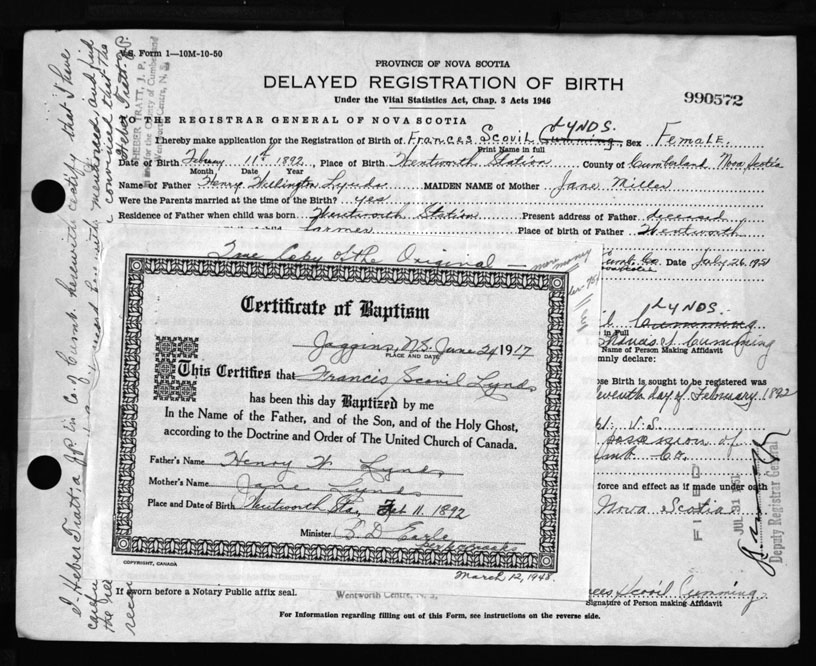 V.S. Form 1—10M-10-50
PROVINCE OF NOVA SCOTIA
DELAYED REGISTRATION OF BIRTH
Under the Vital Statistics Act, Chap. 3 Acts 1946
990572
TO THE REGISTRAR GENERAL OF NOVA SCOTIA
LYNDS.
I hereby make application for the Registration of Birth of Frances Scovil Cumming Sex Female.
Print Name in full
Date of Birth Febuary 11th 1892, Place of Birth Wentworth Station County of Cumberland Nova Scotia
Month Date Year
Name of Father Henry Wellington Lynds MAIDEN NAME of Mother Jane Miller
Were the Parents married at the time of the Birth? yes
Residence of Father when child was born Wentworth Station Present address of Father deceased
farmer Place of birth of Father Wentworth
True Copy of the Original
Date July 26, 1951
Certificate of Baptism
Joggins, N.S. June 24 1917
PLACE AND DATE
This Certifies that Francis Scovil Lynds
has been this day Baptized by me
In the Name of the Father, and of the Son, and of the Holy Ghost,
according to the Doctrine and Order of The United Church of Canada.
Father's Name Henry W Lynds
Mother's Name Jane Lynds
Place and Date of Birth Wentworth Sta, Feb 11. 1892
Minister B D Earle
COPYRIGHT, CANADA
March 12, 1948.
LYNDS.
Cumming
in Full
Frances S. Cumming
Name of Person Making Affidavit
mnly declare:
ose Birth is sought to be registered was
eleventh day of February 1892
N.S.
possession of
Cumb. Co.
force and effect as if made under oath
Nova Scotia
FILED
JUL 31 1951
Deputy Registrar General
If sworn before a Notary Public affix seal.
Wentworth Centre, N. S.
Frances Scovil Cumming
Signature of Person making Affidavit
For Information regarding filling out of this Form, see instructions on the reverse side.
I. Heber Tratt. a J.P. in Co. of Cumb. herewith certify that I have
HEBER TRATT, J. P.
in and for the County of Cumberland
Wentworth Centre, N. S.